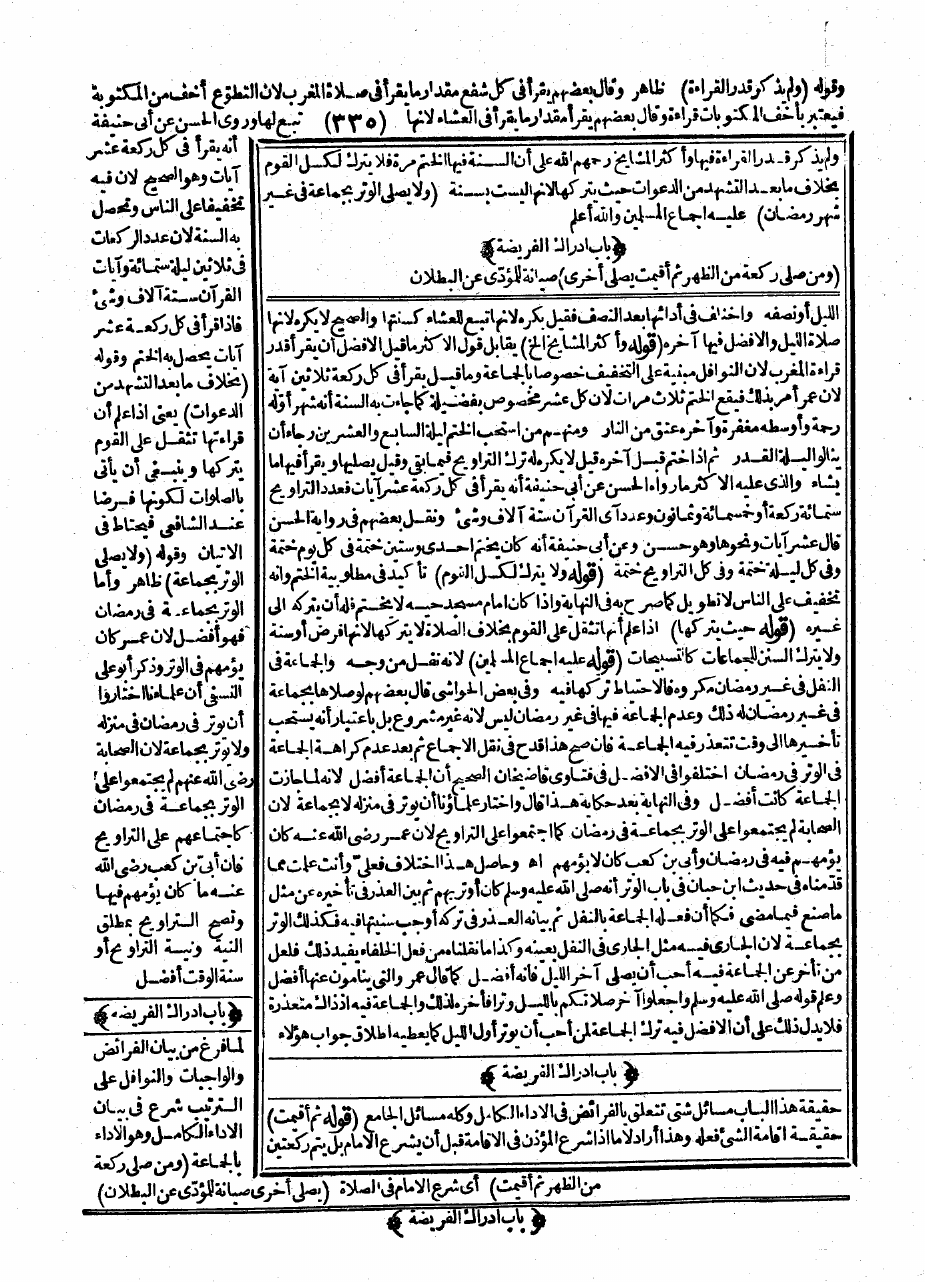 وقوله (ولم يذكر قدر القراءة) ظاهر وقال بعضهم يقرأ فى كل شفع مقدار ما يقرأ فى صلاة المغرب لان التطوع أخف من المكتوبة
فيعتبر بأخف المكتوبات قراءة وقال بعضهم يقرأ مقدار ما يقرأ فى العشاء لانها (٣٣٥) تبع لها وروى الحسن عن أبى حنيفة
أنه يقرأ فى كل ركعة عشر
آيات وهو الصحيح لان فيه
تخفيفا على الناس وتحصل
به السنة لان عدد الركعات
فى ثلاثين ليلة ستمائة وآيات
القرآن ستة آلاف وشئ
فاذا قرأ فى كل ركعة عشر
آيات يحصل به الختم وقوله
(بخلاف ما بعد التشهد من
الدعوات) يعنى اذا علم أن
قراءتها تثقل على القوم
يتركها وينبغى أن يأتى
بالصلوات لكونها فرضا
عند الشافعى فيحتاط فى
الاتيان وقوله (ولا يصلى
الوتر بجماعة) ظاهر وأما
الوتر بجماعة فى رمضان
فهو أفضل لان عمر كان
يؤمهم فى الوتر وذكر أبو على
النسفى أن علماءنا اختاروا
أن يوتر فى رمضان فى منزله
ولا يوتر بجماعة لان الصحابة
رضى الله عنهم لم يجتمعوا على
الوتر بجماعة فى رمضان
كاجتماعهم على التراويح
فان أبى بن كعب رضى الله
عنه ما كان يؤمهم فيها
وتصح التراويح بمطلق
النية ونية التراويح أو
سنة الوقت أفضل
﴿باب ادراك الفريضة﴾
لما فرغ من بيان الفرائض
والواجبات والنوافل على
الترتيب شرع فى بيان
الاداء الكامل وهو الاداء
بالجماعة (ومن صلى ركعة
ولم يذكر قدر القراءة فيها وأكثر المشايخ رحمهم الله على أن السنة فيها الختم مرة فلا يترك لكسل القوم
بخلاف ما بعد التشهد من الدعوات حيث يتركها لانها ليست بسنة (ولا يصلى الوتر بجماعة فى غير
شهر رمضان) عليه اجماع المسلمين والله أعلم
﴿باب ادراك الفريضة﴾
(ومن صلى ركعة من الظهر ثم أقيمت يصلى أخرى) صيانة للمؤدى عن البطلان
الليل أو نصفه واختلف فى أدائها بعد النصف فقيل يكره لانها تبع للعشاء كسنتها والصحيح لا يكره لانها
صلاة الليل والافضل فيها آخره (قوله وأكثر المشايخ الخ) يقابل قول الاكثر ما قيل الافضل أن يقرأ قدر
قراءة المغرب لان النوافل مبنية على التخفيف خصوصا بالجماعة وما قيل يقرأ فى كل ركعة ثلاثين آية
لان عمر أمر بذلك فيقع الختم ثلاث مرات لان كل عشر مخصوص بفضيلة كما جاءت به السنة أنه شهر أوله
رحمة وأوسطه مغفرة وآخره عتق من النار ومنهم من استحب الختم ليلة السابع والعشرين رجاء أن
ينالوا ليلة القدر ثم اذا ختم قبل آخره قيل لا يكره له ترك التراويح فيما بقى وقيل يصليها ويقرأ فيها ما
يشاء والذى عليه الاكثر ما رواه الحسن عن أبى حنيفة أنه يقرأ فى كل ركعة عشر آيات فعدد التراويح
ستمائة ركعة أو خمسمائة وثمانون وعدد آى القرآن ستة آلاف وشئ ونقل بعضهم فى رواية الحسن
قال عشر آيات ونحوها وهو حسن وعن أبى حنيفة أنه كان يختم احدى وستين ختمة فى كل يوم ختمة
وفى كل ليلة ختمة وفى كل التراويح ختمة (قوله ولا يترك لكسل القوم) تأكيد فى مطلوبية الختم وانه
تخفيف على الناس لا تطويل كما صرح به فى النهاية واذا كان امام مسجد حيه لا يختم فله أن يتركه الى
غيره (قوله حيث يتركها) اذا علم أنها تثقل على القوم بخلاف الصلاة لا يتركها لانها فرض أو سنة
ولا يترك السنن للجماعات كالتسبيحات (قوله عليه اجماع المسلمين) لانه نفل من وجه والجماعة فى
النفل فى غير رمضان مكروه فالاحتياط تركها فيه وفى بعض الحواشى قال بعضهم لو صلاها بجماعة
فى غير رمضان له ذلك وعدم الجماعة فيها فى غير رمضان ليس لانه غير مشروع بل باعتبار أنه يستحب
تأخيرها الى وقت تتعذر فيه الجماعة فان صح هذا قدح فى نقل الاجماع ثم بعد عدم كراهة الجماعة
فى الوتر فى رمضان اختلفوا فى الافضل فى فتاوى قاضيخان الصحيح أن الجماعة أفضل لانه لما جازت
الجماعة كانت أفضل وفى النهاية بعد حكاية هذا قال واختار علماؤنا أن يوتر فى منزله لا بجماعة لان
الصحابة لم يجتمعوا على الوتر بجماعة فى رمضان كما اجتمعوا على التراويح لان عمر رضى الله عنه كان
يؤمهم فيه فى رمضان وأبى بن كعب كان لا يؤمهم اه وحاصل هذا اختلاف فعلى وأنت علمت مما
قدمناه فى حديث ابن حبان فى باب الوتر أنه صلى الله عليه وسلم كان أوتر بهم ثم بين العذر فى تأخيره عن مثل
ما صنع فيما مضى فكما أن فعله الجماعة بالنفل ثم بيانه العذر فى تركه أوجب سنيتها فيه فكذلك الوتر
بجماعة لان الجارى فيه مثل الجارى فى النفل بعينه وكذا ما نقلناه من فعل الخلفاء يفيد ذلك فلعل
من تأخر عن الجماعة فيه أحب أن يصلى آخر الليل فانه أفضل كما قال عمر والتى ينامون عنها أفضل
وعلم قوله صلى الله عليه وسلم واجعلوا آخر صلاتكم بالليل وترا فأخره لذلك والجماعة فيه اذ ذاك متعذرة
فلا يدل ذلك على أن الافضل فيه ترك الجماعة لمن أحب أن يوتر أول الليل كما يعطيه اطلاق جواب هؤلاء
﴿باب ادراك الفريضة﴾
حقيقة هذا الباب مسائل شتى تتعلق بالفرائض فى الاداء الكامل وكله مسائل الجامع (قوله ثم أقيمت)
حقيقة اقامة الشئ فعله وهذا أراد لا ما اذا شرع المؤذن فى الاقامة قبل أن يشرع الامام بل يتم ركعتين
من الظهر ثم أقيمت) أى شرع الامام فى الصلاة (يصلى أخرى صيانة للمؤدى عن البطلان)
﴿باب ادراك الفريضة﴾